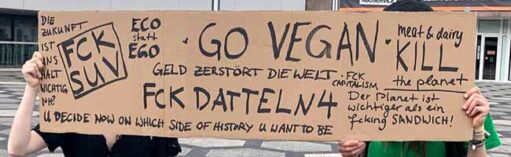 DIE
ZUKUNFT
IST
UNS
HALT
WICHTIG
NH?
FCK
SUV
ECO
statt
EGO
· GO VEGAN ·
GELD ZERSTÖRT DIE WELT ·
FCK DATTELN4
U DECIDE NOW ON WHICH SIDE OF HISTORY U WANT TO BE
FCK
CAPITALISM
meat & dairy
KILL
the planet
Der Planet ist
wichtiger als ein
fcking SANDWICH!